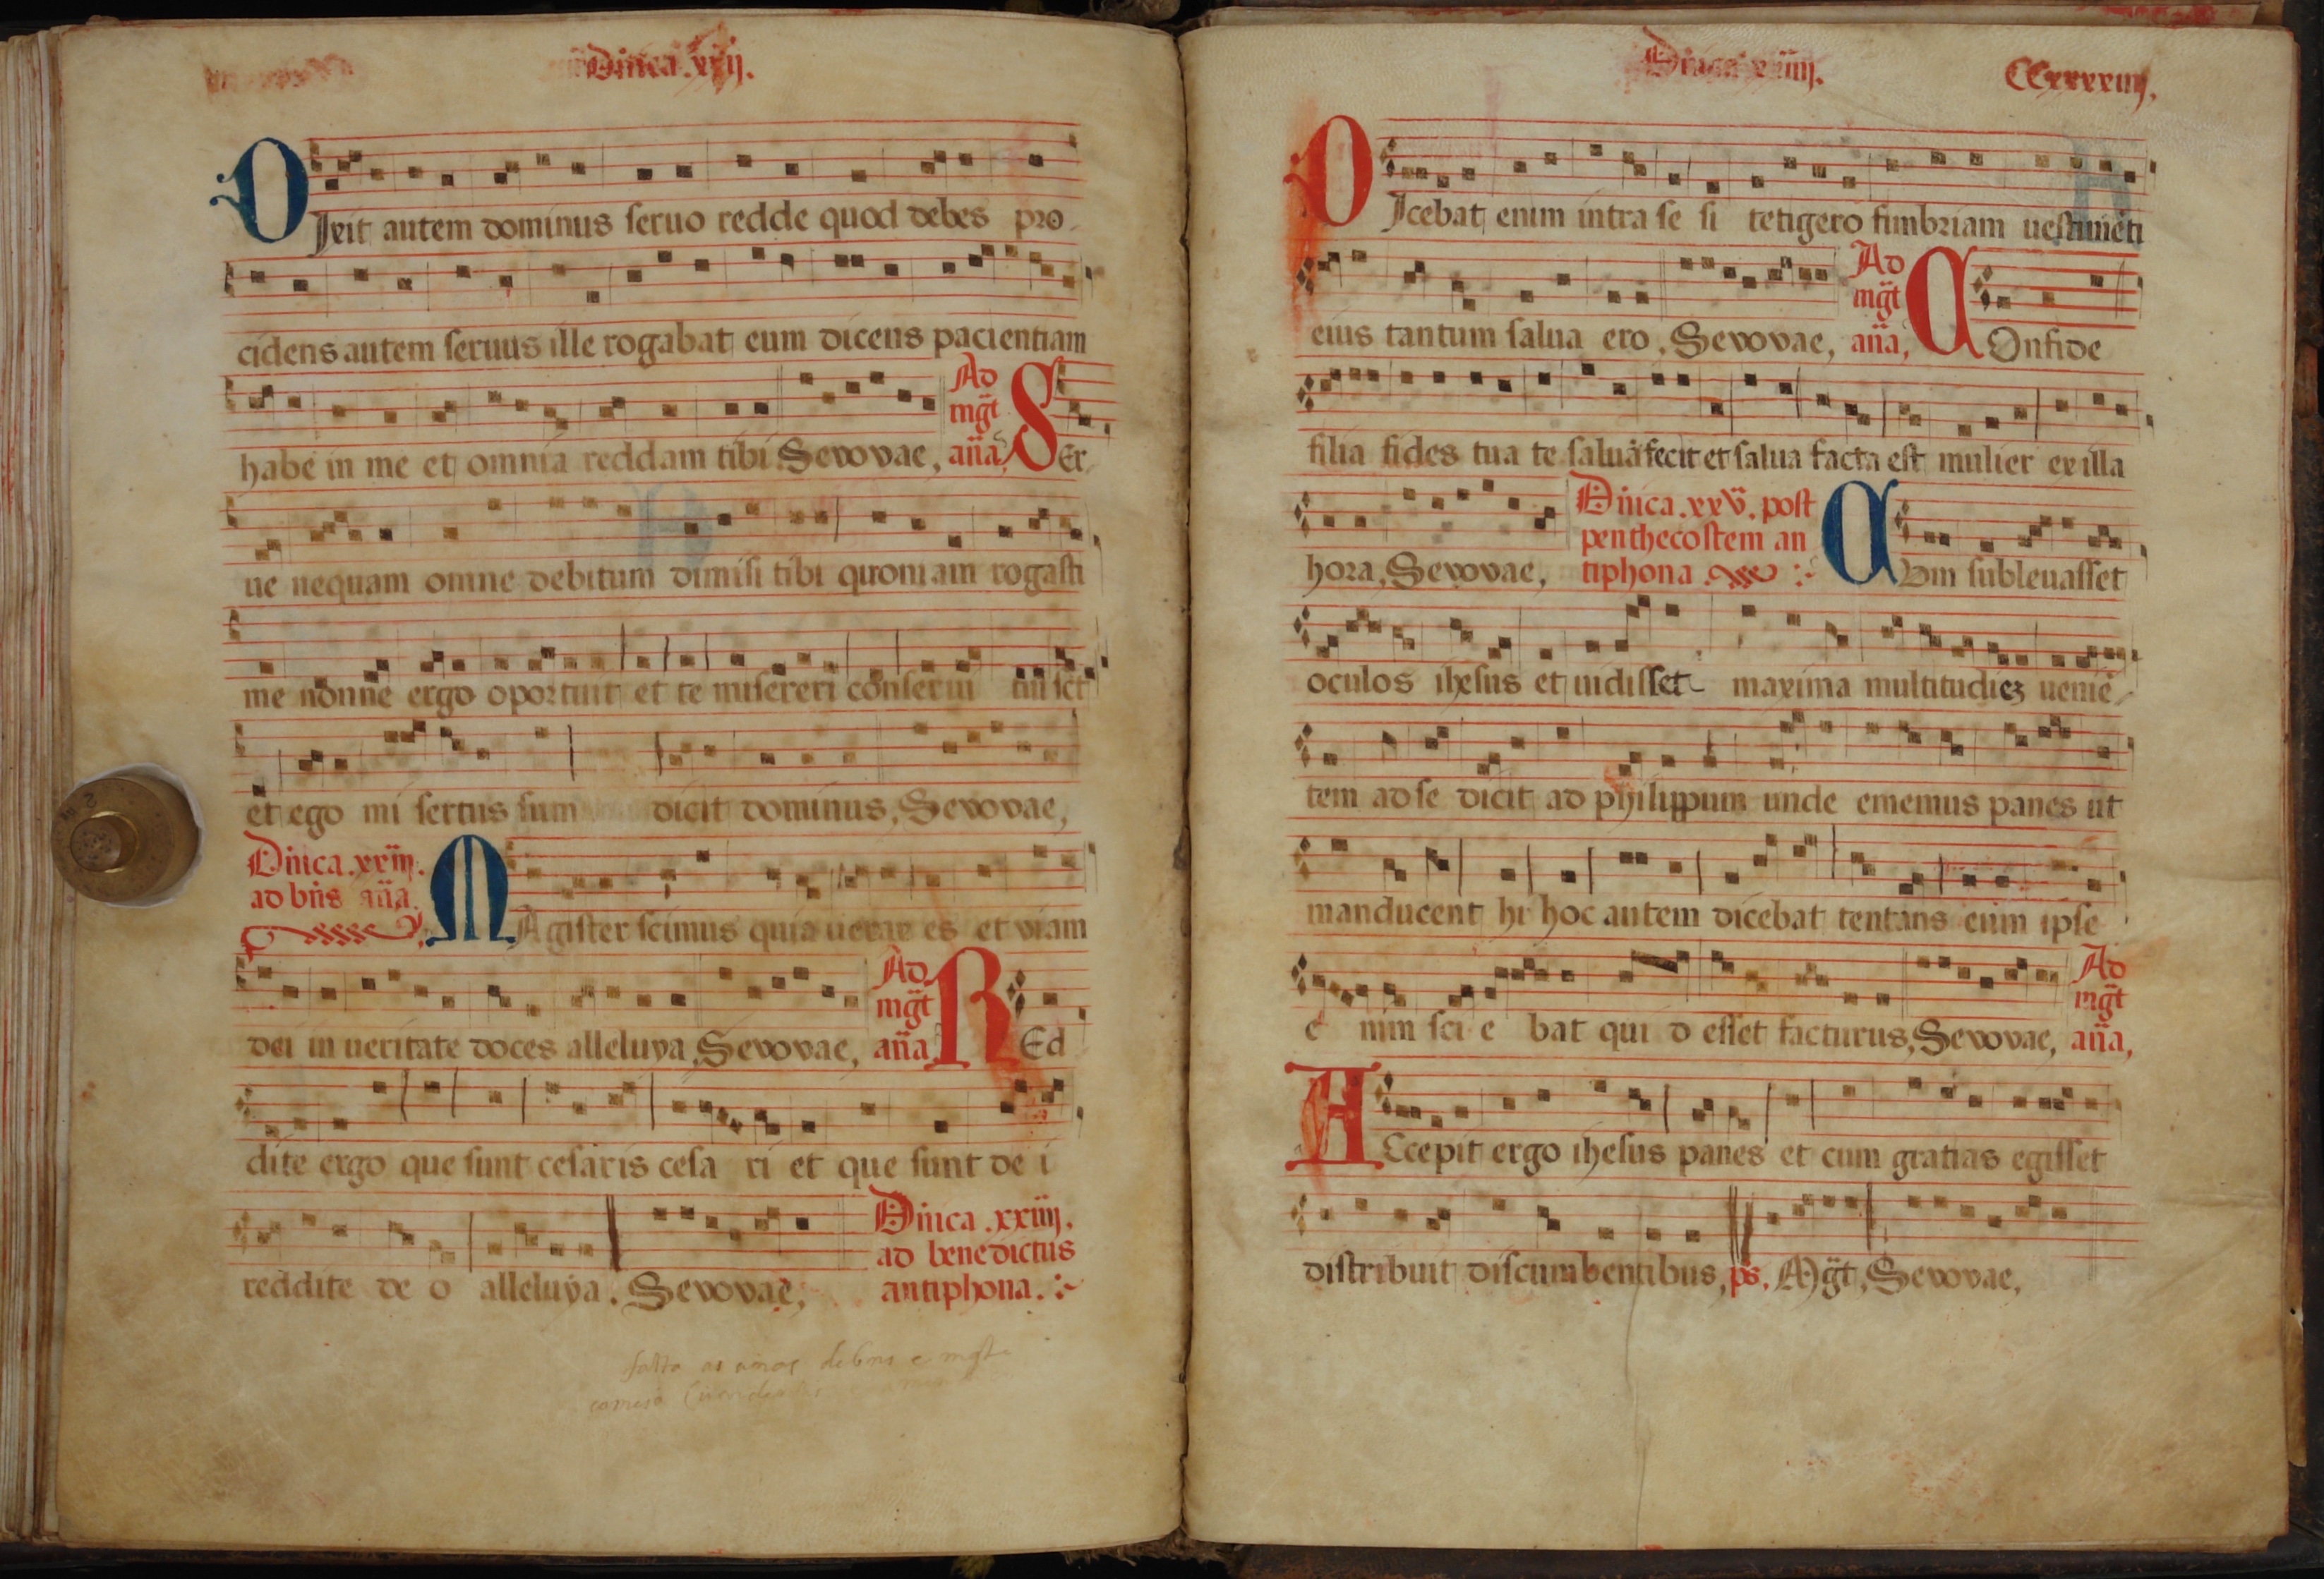 Dnica.xxij.
DIxit autem dominus seruo redde quod debes pro
cidens autem seruus ille rogabat eum dicens pacientiam
habe in me et omnia reddam tibi Sevovae, Ad mgt ana, SEr
ue nequam omne debitum dimisi tibi quoniam rogasti
me nonne ergo oportuit et te misereri conserui tui sct
et ego mi sertus sum dicit dominus, Sevovae,
Dnica.xxiij.
ad bns ana.
MAgister scimus quia uerax es et viam
dei in ueritate doces alleluya, Sevovae, Ad mgt ana, REd
dite ergo que sunt cesaris cesa ri et que sunt de i
reddite de o alleluya. Sevovae,
Dnica.xxiiij.
ad benedictus
antiphona.
falta as
Dnica xxiiij.
CCxxxxiiij.
DIcebat enim intra se si tetigero fimbriam uestimēti
eius tantum salua ero, Sevovae, Ad mgt ana, COnfide
filia fides tua te saluā fecit et salua facta est mulier ex illa
hora, Sevovae,
Dnica.xxv. post
penthecostem an
tiphona.
CVm subleuasset
oculos ihesus et uidisset maxima multitudiēz ueniē
tem ad se dicit ad philippum unde ememus panes ut
manducent hi hoc autem dicebat tentans eum ipse
e nim sci e bat qui d esset facturus, Sevovae, Ad mgt ana,
ACcepit ergo ihesus panes et cum gratias egisset
distribuit discumbentibus, ps. Mgt, Sevovae,